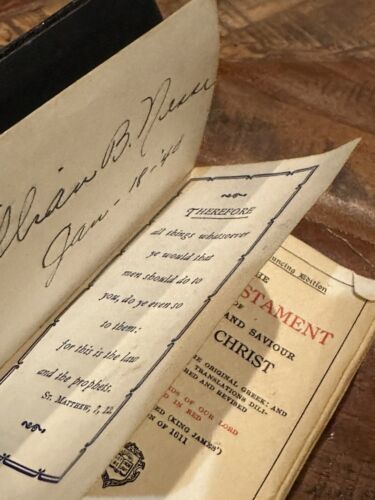 lliam B.
Jan - 18 -
THEREFORE
all things whatsoever
ye would that
men should do to
you, do ye even so
to them:
for this is the law
and the prophets.
ST. MATTHEW, 7, 12.
uncing Edition
HE
STAMENT
OF
AND SAVIOUR
CHRIST
E ORIGINAL GREEK: AND
TRANSLATIONS DILI-
RED AND REVISED
RDS OF OUR LORD
D IN RED
ED (KING JAMES')
N OF 1611